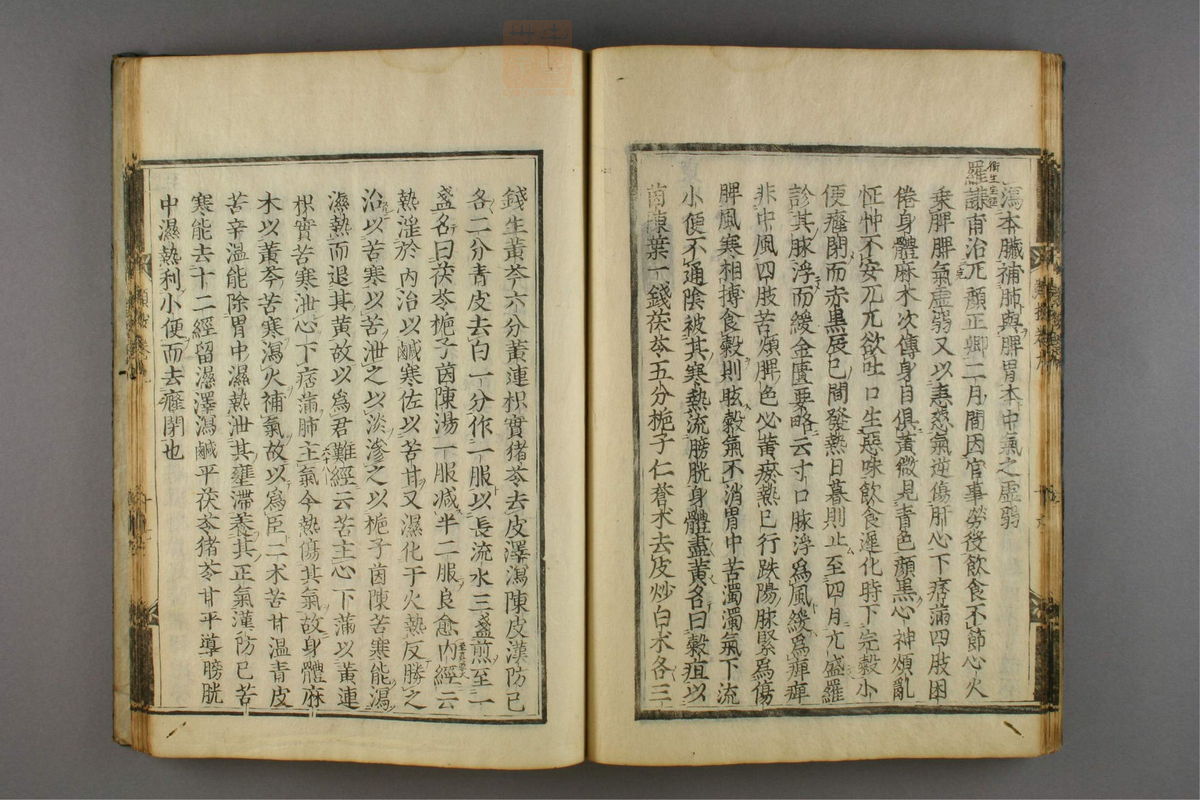 瀉本臟補肺與脾胃本中氣之虛弱
羅謙甫治兀顏正卿二月間因官事勞役飲食不節心火
乗脾脾氣虛弱又以恚怒氣逆傷肝心下痞滿四肢困
倦身體麻木次傳身目俱黃微見青色顏黑心神煩亂
怔忡不安兀兀欲吐口生惡味飲食遲化時下完穀小
便癃閉而赤黒辰巳間發熱日暮則止至四月尤盛羅
診其脉浮而緩金匱要略云寸口脉浮爲風緩爲痺痺
非中風四肢苦煩脾色必黃瘀熱已行趺陽脉緊爲傷
脾風寒相摶食穀則眩穀氣不消胃中苦濁濁氣下流
小便不通陰被其寒熱流膀胱身體盡黃名曰穀疸以
茵陳葉一錢茯苓五分梔子仁蒼朮去皮炒白朮各三
錢生黃芩六分黃連枳實猪苓去皮澤瀉陳皮漢防已
各二分青皮去白一分作一服以長流水三盞煎至一
盞名曰茯苓梔子茵陳湯一服减半二服良愈內經云
熱淫於內治以鹹寒佐以苦甘又濕化于火熱反勝之
治以苦寒以苦泄之以淡滲之以梔子茵陳苦寒能瀉
濕熱而退其黃故以爲君難經云苦主心下滿以黃連
枳實苦寒泄心下痞滿肺主氣今熱傷其氣故身體麻
木以黃芩苦寒瀉火補氣故以爲臣二朮苦甘溫青皮
苦辛溫能除胃中濕熱泄其壅滯養其正氣漢防已苦
寒能去十二經留濕澤瀉鹹平茯苓猪苓甘平導膀胱
中濕熱利小便而去癃閉也